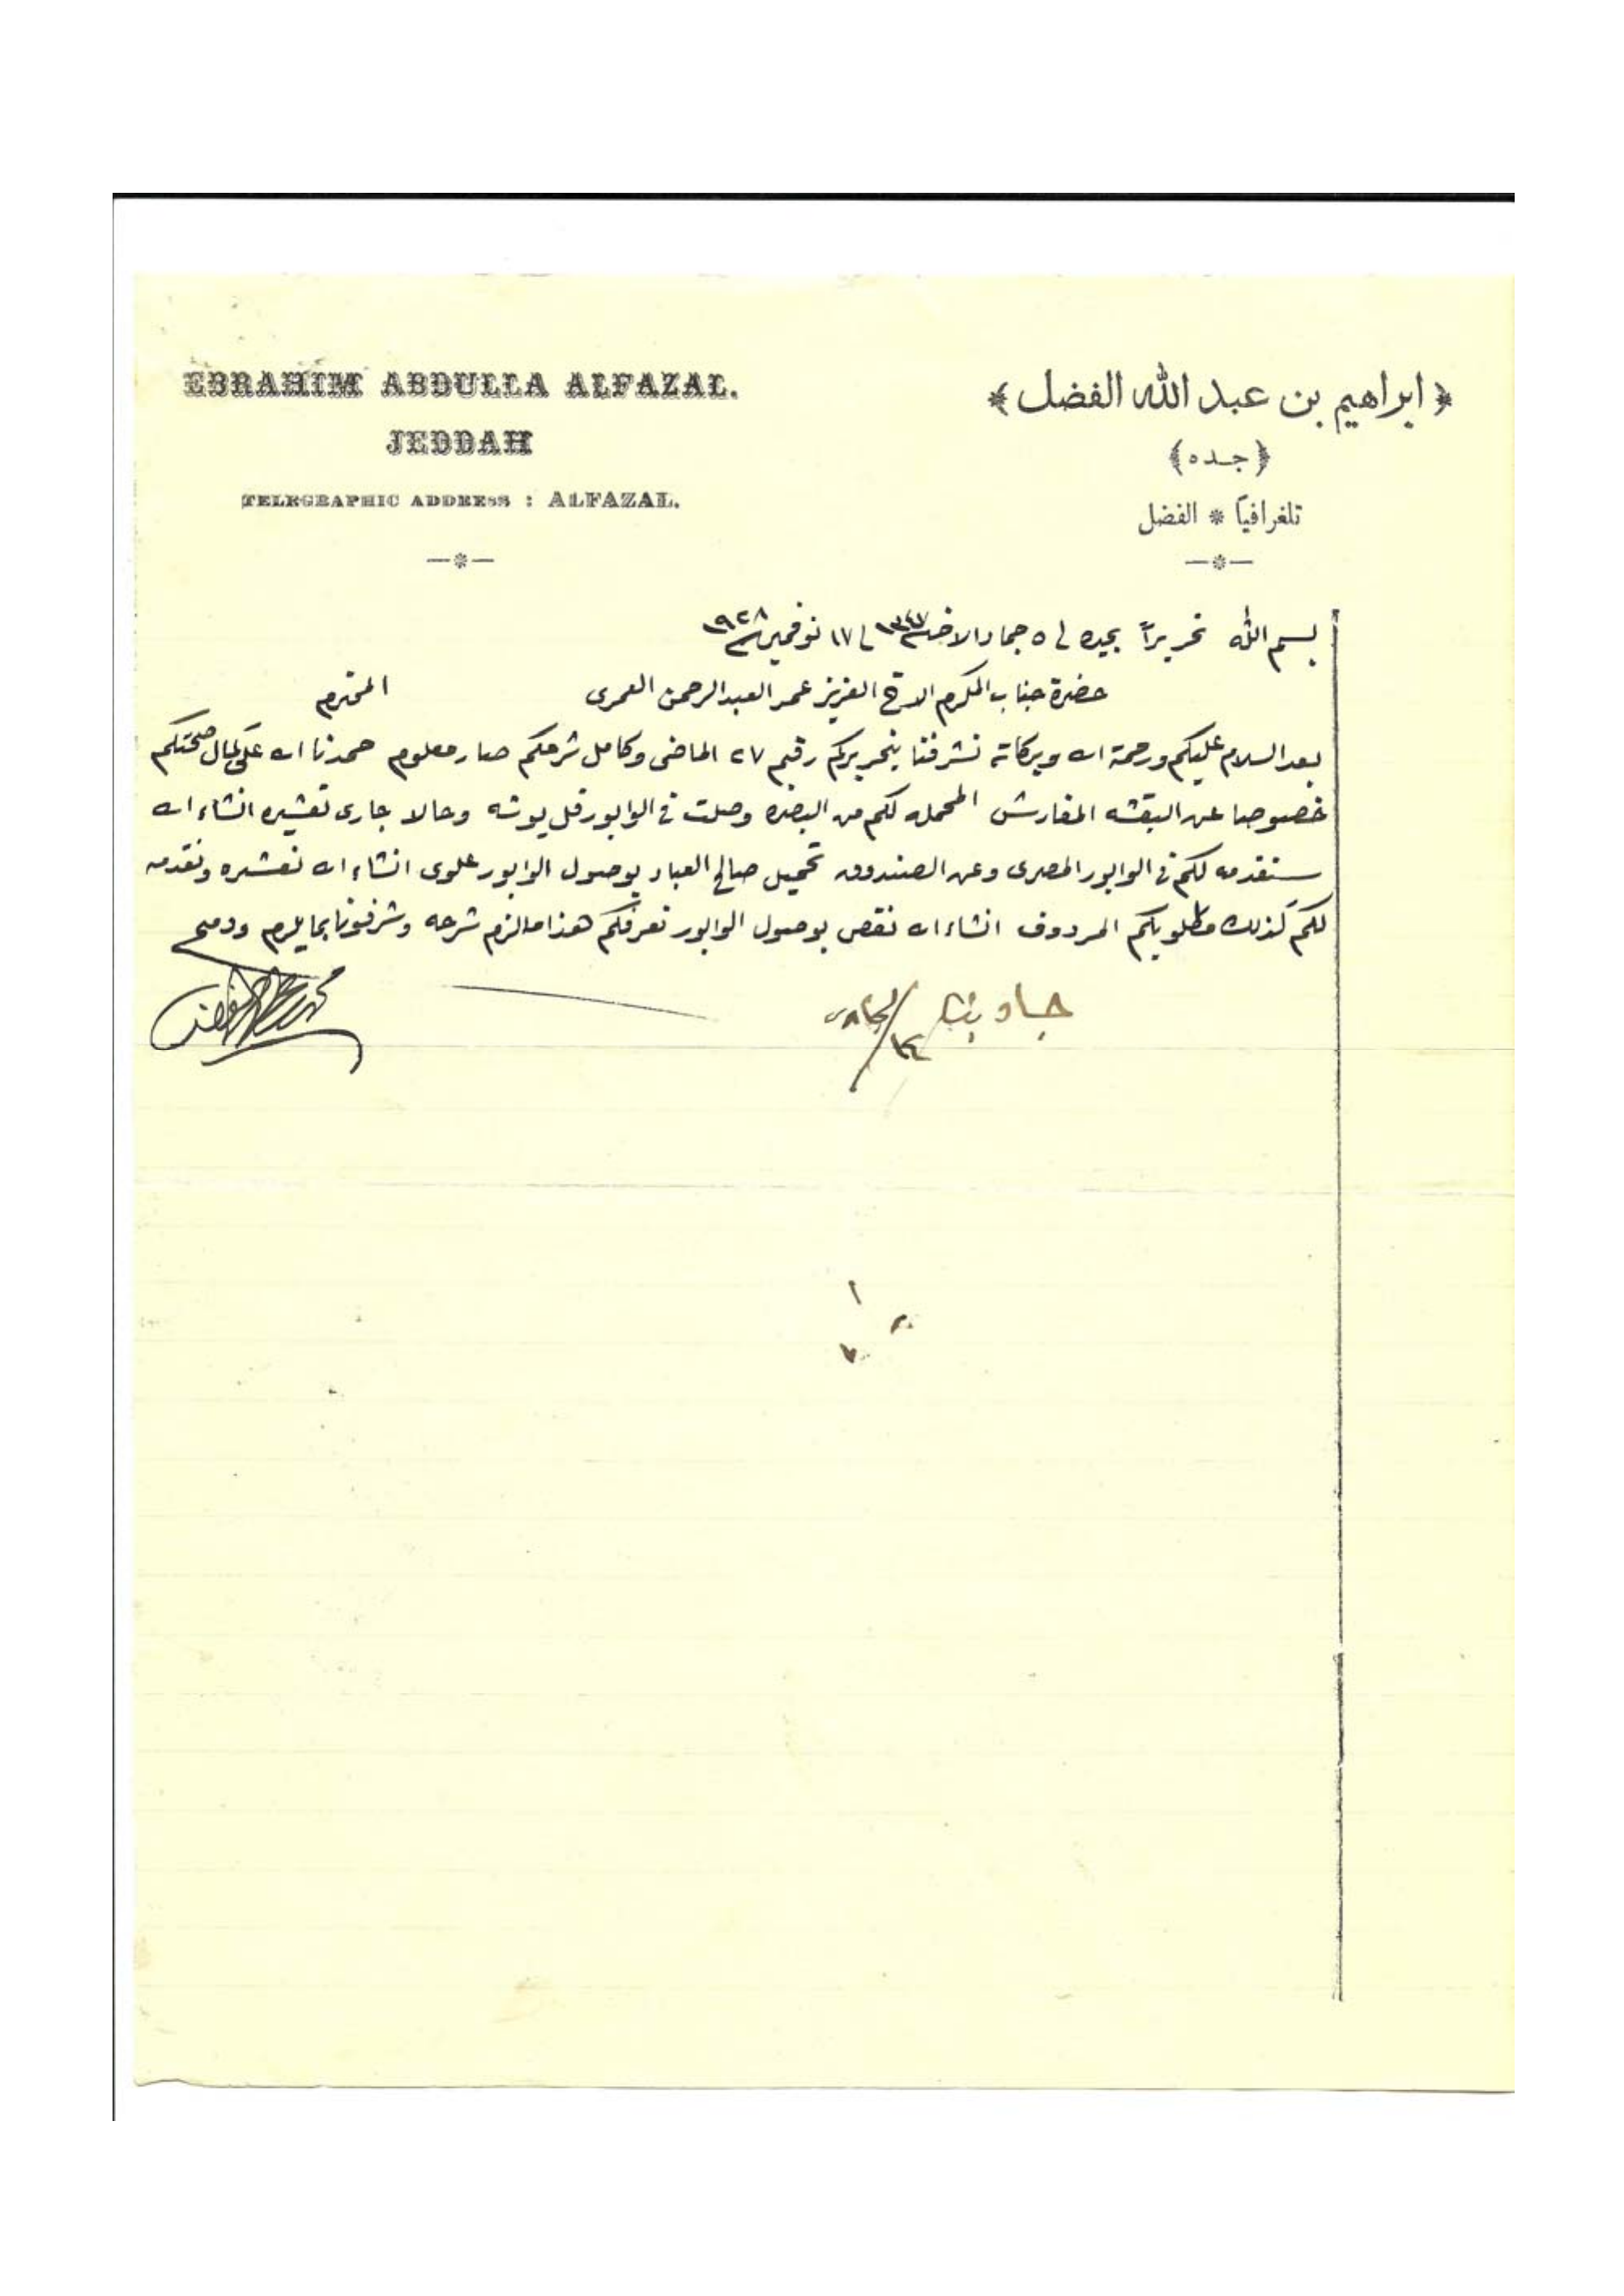 EBRAHIM ABDULLA ALFAZAL.
JEDDAH
TELEGRAPHIC ADDRESS : ALFAZAL.
ابراهيم بن عبد الله الفضل
(جده)
تلغرافياً * الفضل
بسم الله تحريراً بجده في ٥ جماد الاخر ١٣٤٧ في ١٧ نوفمبر ١٩٢٨
حضرة جناب المكرم الاخ العزيز عمر العبدالرحمن العمرى المحترم
بعد السلام عليكم ورحمة الله وبركاته تشرفنا بتحريركم رقيم ٢٧ الماضى وكامل شرحكم صار معلوم حمدنا الله على كمال صحتكم
خصوصا عن البقشه المفارش المحمله لكم من البصره وصلت في الوابور وحالا جارى تعشيره انشاء الله
سنقدمه لكم في الوابور المصرى وعن الصندوق تحميل صالح العباد بوصول الوابور علوى انشاء الله نعشره ونقدمه
لكم كذلك مطلوبكم المردوف انشاء الله نقص بوصول الوابور نعرفكم هذا مالزم شرحه وشرفونا بما يلزم ودمتم